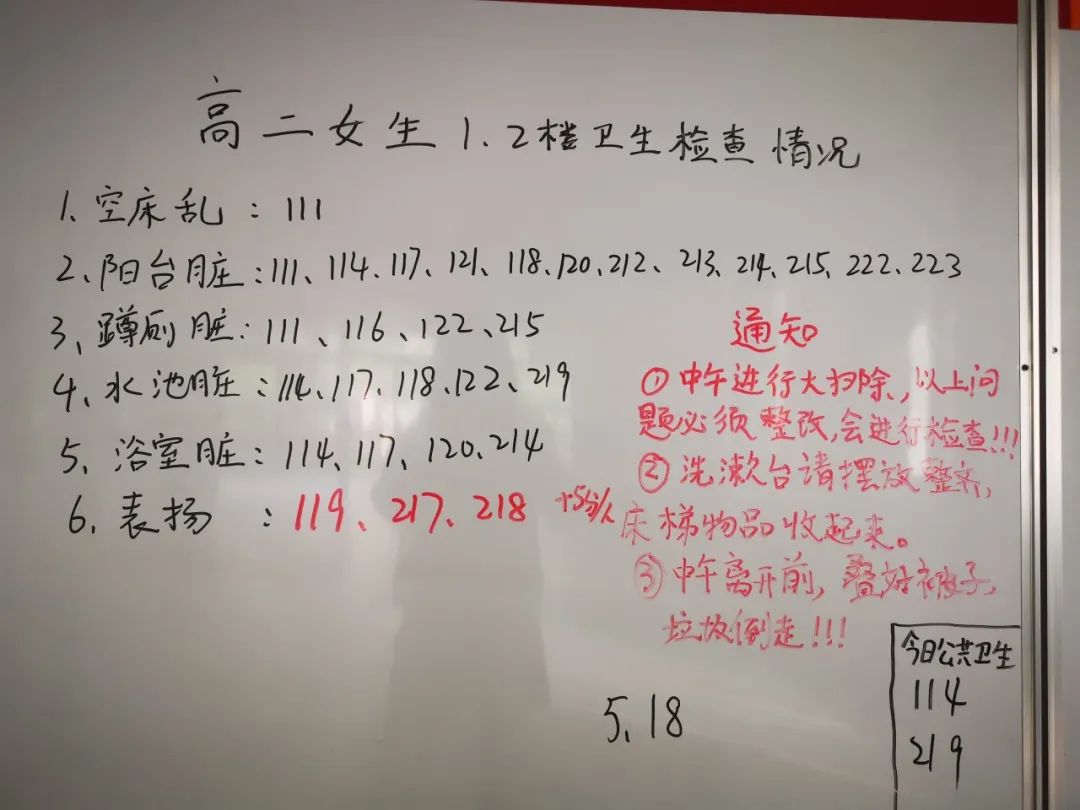 高二女生1.2楼卫生检查情况
1、空床乱：111
2、阳台脏：111、114、117、121、118、120、212、213、214、215、222、223
3、蹲厕脏：111、116、122、215
4、水池脏：114、117、118、122、219
5、浴室脏：114、117、120、214
6、表扬：119、217、218 +5分/人
通知
①中午进行大扫除，以上问
题必须整改，会进行检查!!!
②洗漱台请摆放整齐，
床梯物品收起来。
③中午离开前，叠好被子，
垃圾倒走!!!
今日公共卫生
114
219
5.18